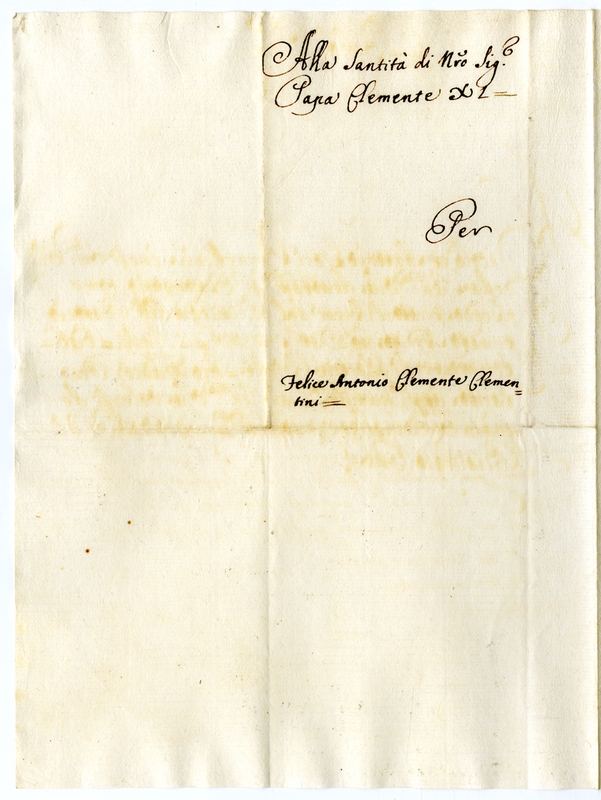 Alla Santità di Nr̃o Sig.e
Papa Clemente XI =
Per
Felice Antonio Clemente Clemen=
tini =